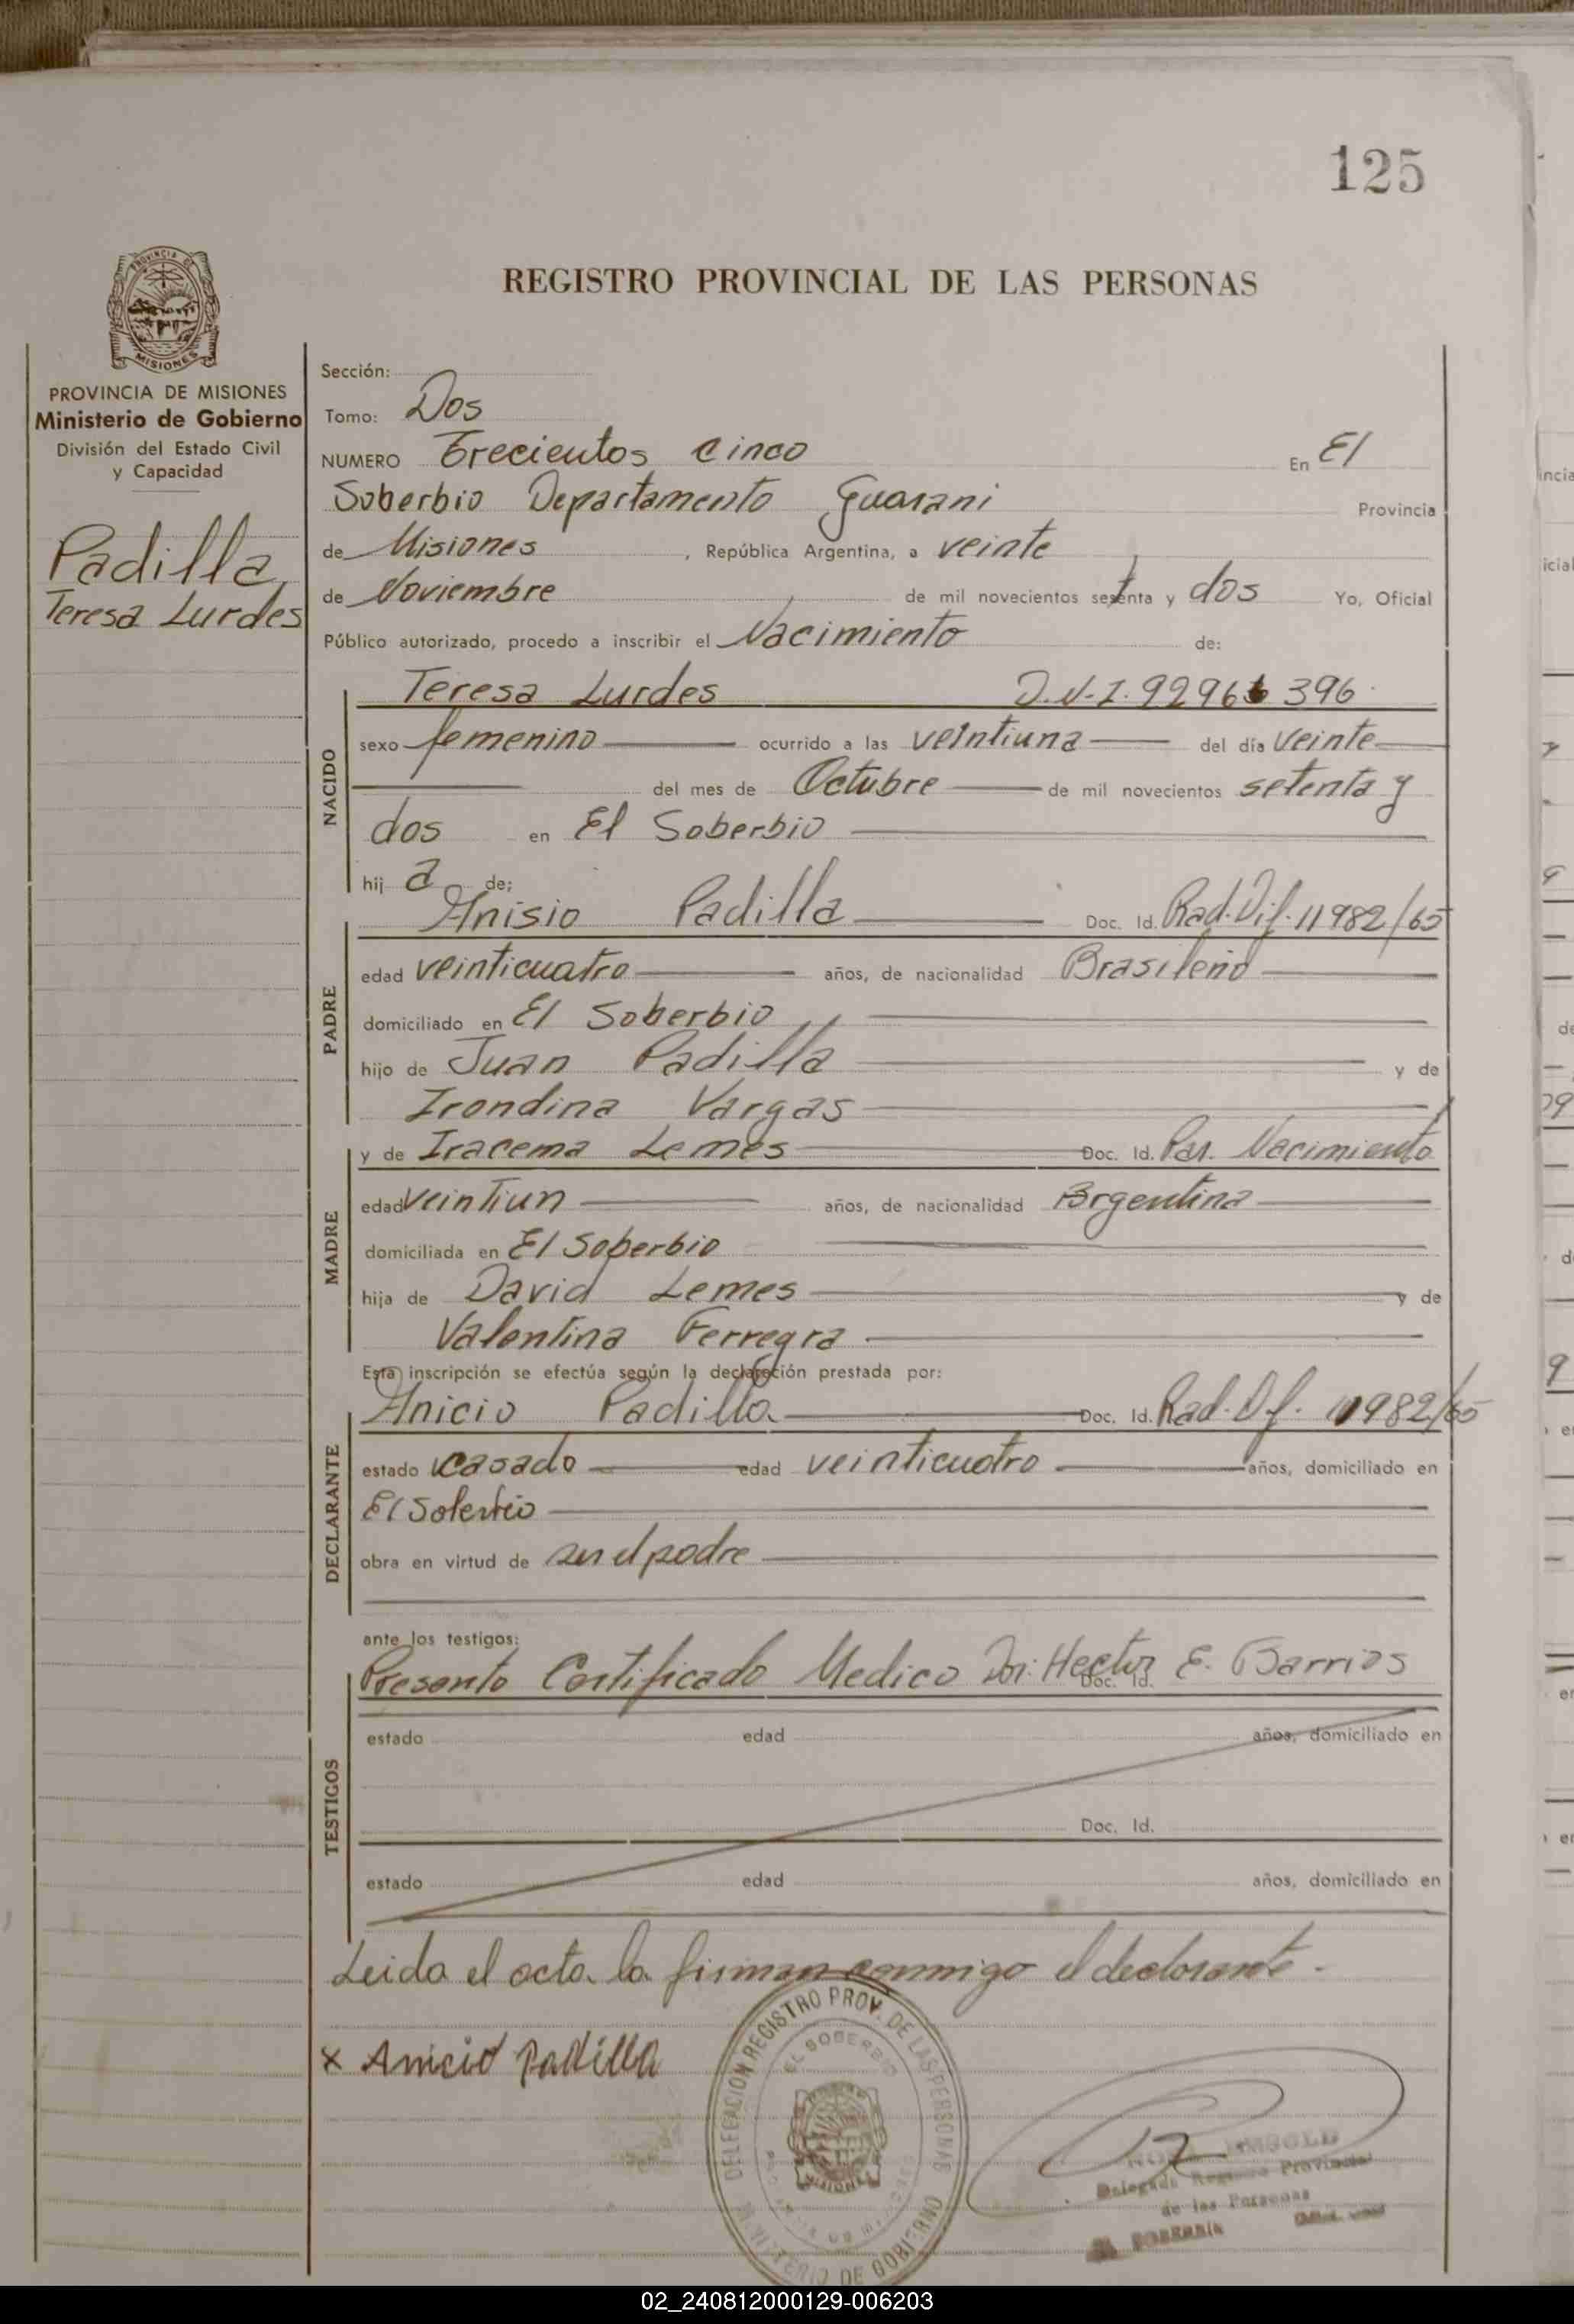 125
PROVINCIA DE
MISIONES
REGISTRO PROVINCIAL DE LAS PERSONAS
PROVINCIA DE MISIONES
Ministerio de Gobierno
División del Estado Civil
y Capacidad
Padilla,
Teresa Lurdes
Sección:
Tomo: Dos
NUMERO Trecientos cinco En El
Soberbio Departamento Guarani Provincia
de Misiones, República Argentina, a veinte
de Noviembre de mil novecientos setenta y dos Yo, Oficial
Público autorizado, procedo a inscribir el Nacimiento de:
NACIDO
Teresa Lurdes D.N.I. 396
sexo femenino ocurrido a las veintiuna del día veinte
del mes de Octubre de mil novecientos setenta y
dos en El Soberbio
hij a de:
PADRE
Anisio Padilla Doc. Id. Rad. Dif. 11982/65
edad veinticuatro años, de nacionalidad Brasileño
domiciliado en El Soberbio
hijo de Juan Padilla y de
Irondina Vargas
MADRE
y de Iracema Lemes Doc. Id. Par. Nacimiento
edad veintiun años, de nacionalidad Argentina
domiciliada en El Soberbio
hija de David Lemes y de
Valentina Ferregra
Esta inscripción se efectúa según la declaración prestada por:
DECLARANTE
Anicio Padilla Doc. Id. Rad. Df. 11982/65
estado casado edad veinticuatro años, domiciliado en
El Soberbio
obra en virtud de ser el padre
ante los testigos:
TESTIGOS
Presento Certificado Medico Dr: Hector E. Barrios
Doc. Id.
estado edad años, domiciliado en
Doc. Id.
estado edad años, domiciliado en
Leida el acta la firman conmigo el declarante.
x Anicio Padilla
DELEGACION REGISTRO PROV. DE LAS PERSONAS
EL SOBERBIO
MISIONES
MINISTERIO DE GOBIERNO
Delegado Registro Provincial
de las Personas
EL SOBERBIO
02_240812000129-006203